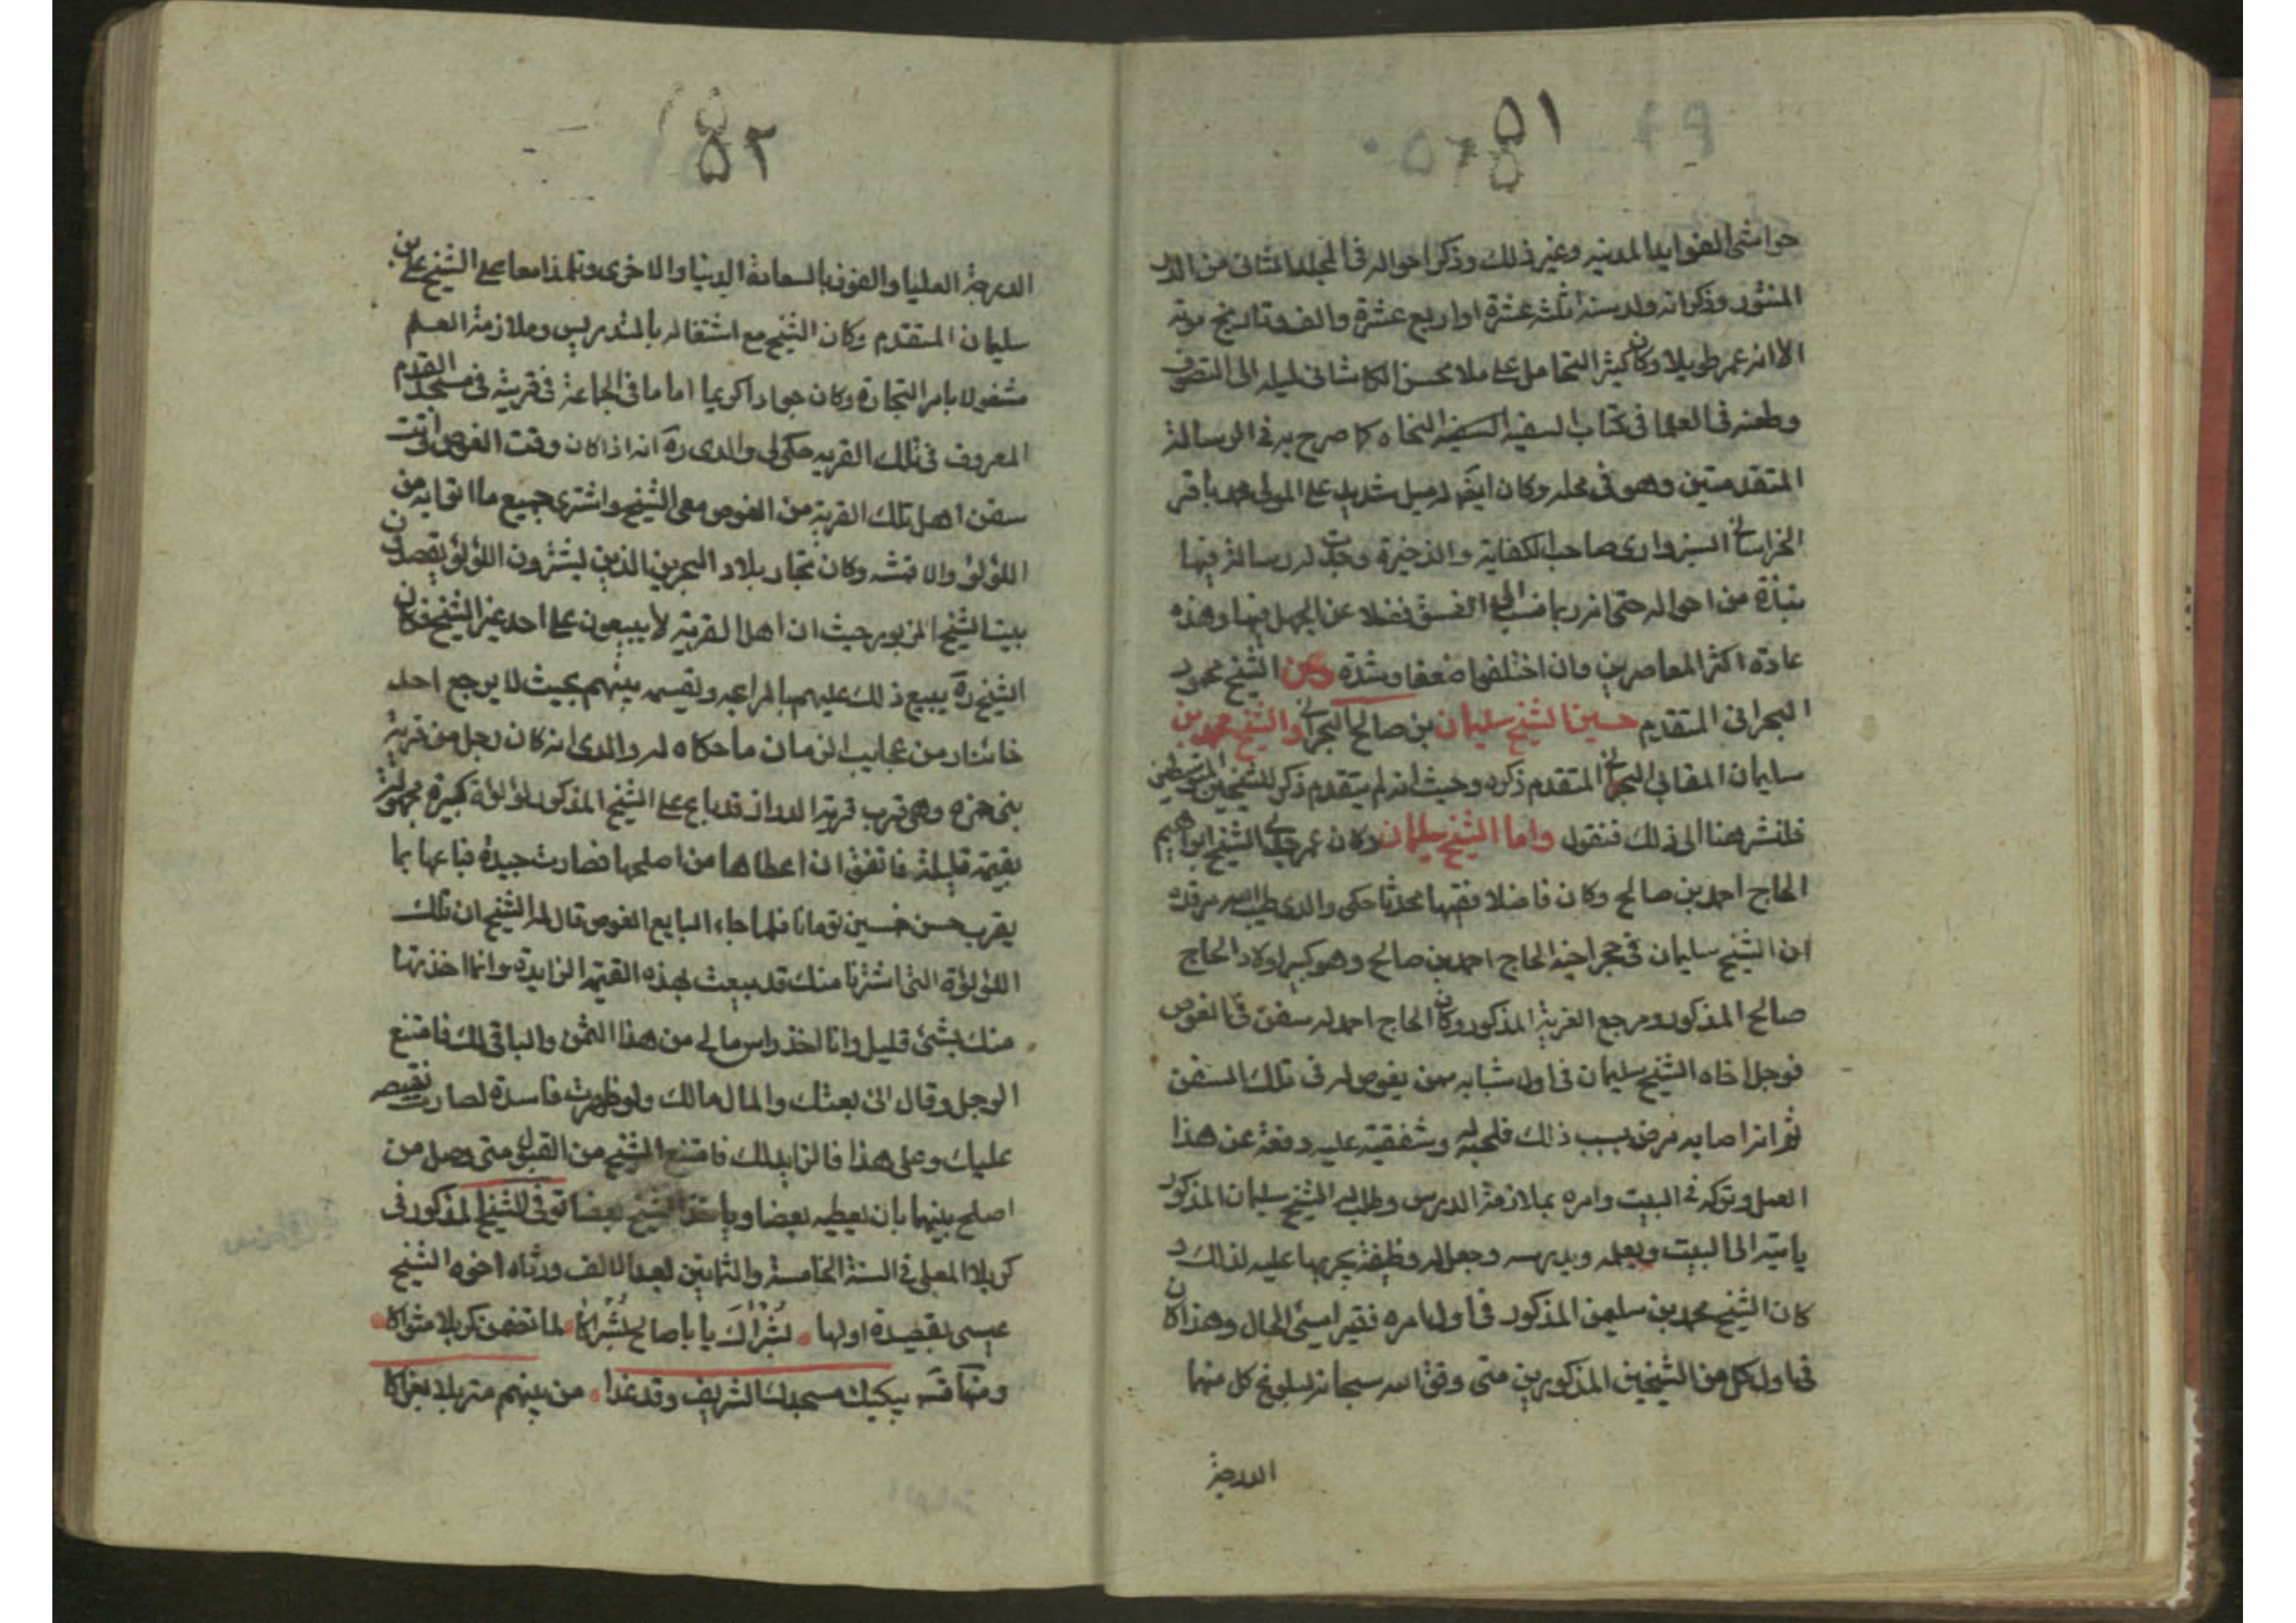 ٥١
حواشى الفوايد المدنيه وغير ذلك وذكر احواله فى المجلد الثانى من الدر
المنثور وذكر انه ولد سنة ثلثة عشرة او اربع عشرة والف وتاريخ موته
الا انه عمر طويلا وكان كثير التحامل على ملا محسن الكاشانى لميله الى التصوف
وطعنه فى العلما فى كتاب السفينه النجاه كما صرح به فى الرسالة
المتقدمتين وهو فى محله وكان ايضا له ميل شديد على المولى محمد باقر
الخراسانى السبزوارى صاحب الكفاية والذخيرة وجدت له رسالة فيها
نبذة من احواله حتى انه ربما نسبه الى الفسق فضلا عن الجهل فيها وهذه
عادة اكثر المعاصرين وان اختلفوا ضعفا وشدة وعن الشيخ محمود
البحرانى المتقدم حسين الشيخ سليمان بن صالح البحرانى والشيخ محمد بن
سليمان المقابى البحرانى المتقدم ذكره وحيث انه لم يتقدم ذكر للشيخين المتوسطين
فلنشر هنا الى ذلك فنقول واما الشيخ سليمان وكان عم جدى الشيخ ابراهيم
الحاج احمد بن صالح وكان فاضلا فقيها محدثا حكى والدى طيب الله مرقده
ان الشيخ سليمان فى حجر اخيه الحاج احمد بن صالح وهو كبير اولاد الحاج
صالح المذكور ومرجع القرية المذكور وكان الحاج احمد له سفن فى الغوص
فوجل اخاه الشيخ سليمان فى اول شبابه ممن يغوص له فى تلك السفن
ثم انه اصابه مرض بسبب ذلك فلحبه له وشفقته عليه دفعه عن هذا
العمل وتركه فى البيت وامره بملازمة الدرس وطلب الشيخ سليمان المذكور
ياتيه الى البيت ويعلمه ويدرسه وجعل له وظيفة يجريها عليه لذلك و
كان الشيخ محمد بن سليمن المذكور فى اول امره فقيرا سيئ الحال وهذا كان
فى اول كل من الشيخين المذكورين متى وفق الله سبحانه لبلوغ كل منهما
الدرجة
٥٢
الدرجة العليا والفوز بالسعادة الدنيا والاخرى وتلمذا معا على الشيخ على بن
سليمان المتقدم وكان الشيخ مع اشتغاله بالتدريس وملازمة العلم
مشغولا بامر التجارة وكان جوادا كريما اماما فى الجماعة فى قريته فى مسجد القدم
المعروف فى تلك القريه حكى لى والدى ره انه اذا كان وقت الغوص واتت
سفن اهل تلك القرية من الغوص معى الشيخ واشترى جميع ما اتوا به من
اللؤلؤ والاقمشه وكان تجار بلاد البحرين الذين يشترون اللؤلؤ يقصدون
بيت الشيخ المزبور حيث ان اهل القرية لا يبيعون على احد غير الشيخ فكان
الشيخ ره يبيع ذلك عليهم بالمرابحه ويقسمه بينهم بحيث لا يرجع احد
خائبا ومن عجايب الزمان ما حكاه له والدى انه كان رجل من قرية
بنى حمزه وهى قرب قرية الدراز قد باع على الشيخ المذكور لؤلؤة كبيرة مجهولة
بقيمة قليلة فاتفق ان اعطاها من اصلحها فصارت جيدة فباعها بما
يقرب حسن خمسين تومانا فلما جاء البايع الغوص قال له الشيخ ان تلك
اللؤلؤة التى اشتريتها منك قد بيعت بهذه القيمة الزايدة وانما اخذتها
منك بشئ قليل وانا اخذ راس مالى من هذا الثمن والباقى لك فامتنع
الرجل وقال انى بعتك والمال مالك ولو ظهرت فاسدة لصارت نقيصه
عليك وعلى هذا فالزايد لك فامتنع الشيخ من القبول متى وصل من
اصلح بينهما بان يعطيه بعضا وياخذ الشيخ بعضا توفى الشيخ المذكور فى
كربلا المعلى فى السنة الخامسة والثمانين بعد الالف ورثاه اخوه الشيخ
عيسى بقصيدة اولها بشراك يا باصالح بشراكا لما تخفن كربلا مثواكا
ومنها قسه يبكيك مسجدك الشريف وقد غدا من بينهم متربلا بغراكا